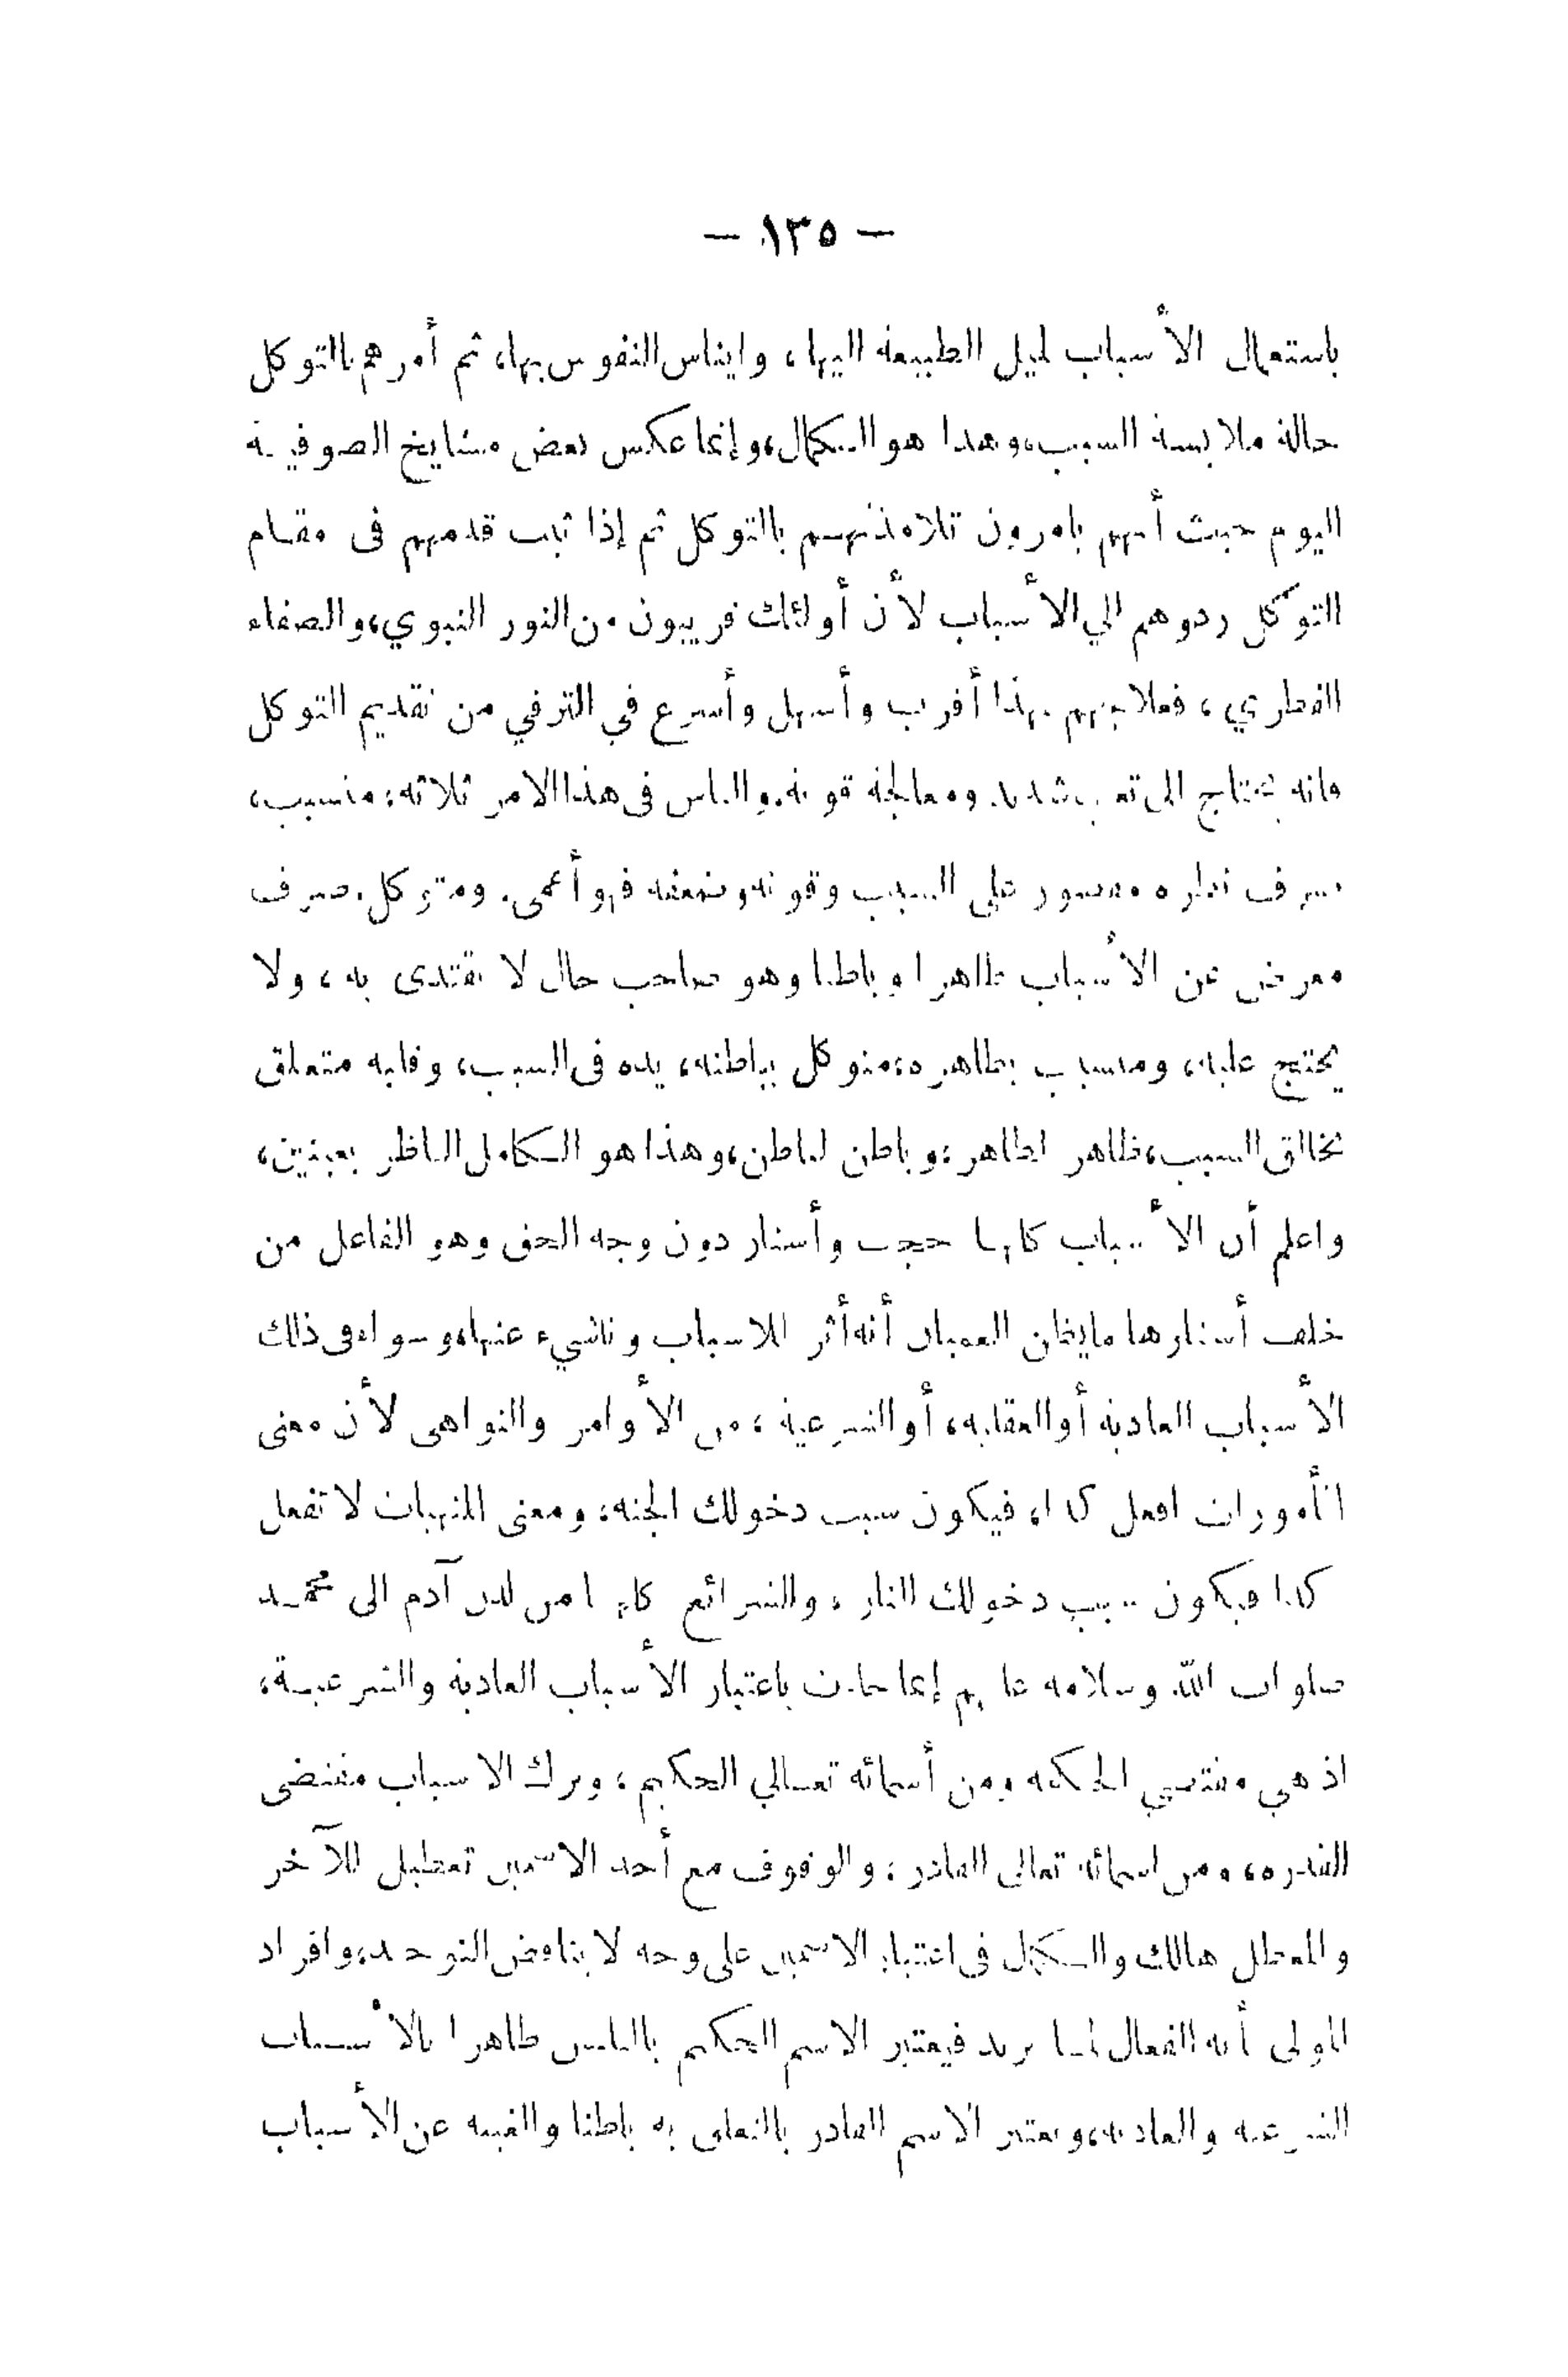 — ١٣٥ —
باستعمال الأسباب لميل الطبيعة اليها، وايناس النفوس بها، ثم أمرهم بالتوكل
حالة ملابسة السبب، وهذا هو الكمال، وإنما عكس بعض مشايخ الصوفية
اليوم حيث أنهم يامرون تلامذتهم بالتوكل ثم إذا ثبت قدمهم فى مقام
التوكل ردوهم الي الأسباب لأن أولئك قريبون من النور النبوي، والصفاء
الفطري، فعلاجهم بهذا أقرب وأسهل وأسرع في الترقي من تقديم التوكل
فانه يحتاج الى تعب شديد. ومعالجة قوية. والناس فى هذا الامر ثلاثة: متسبب،
صرف نظره مقصور على السبب وقوته وضعفه فهو أعمى. ومتوكل. صرف
معرض عن الأسباب ظاهرا وباطنا وهو صاحب حال لا يقتدى به، ولا
يحتج عليه، ومتسبب بظاهره، متوكل بباطنه، يده فى السبب، وقلبه متعلق
بخالق السبب، فظاهر لظاهر، وباطن لباطن، وهذا هو الكامل الناظر بعينين،
واعلم أن الأسباب كلها حجب وأستار دون وجه الحق وهو الفاعل من
خلف أستارها ما يظن العميان أنه أثر للاسباب وناشيء عنها، وسواء فى ذلك
الأسباب العادية أو العقلية، أو الشرعية، من الأوامر والنواهى لأن معنى
المأمورات افعل كذا، فيكون سبب دخولك الجنة، ومعنى المنهيات لا تفعل
كذا فيكون سبب دخولك النار، والشرائع كلها من لدن آدم الى محمد
صلوات الله وسلامه عليهم إنما جاءت باعتبار الأسباب العادية والشرعية،
اذ هي مقتضي الحكمة ومن أسمائه تعالي الحكيم، وترك الاسباب مقتضى
القدرة، ومن اسمائه تعالى القادر، والوقوف مع أحد الاسمين تعطيل للآخر
والمعطل هالك والكمال فى اعتبار الاسمين على وجه لا يناقض التوحيد، وافراد
المولى أنه الفعال لما يريد فيعتبر الاسم الحكيم بالتلبس ظاهرا بالأسباب
الشرعية والعادية، ويعتبر الاسم القادر بالتعلق به باطنا والغيبه عن الأسباب